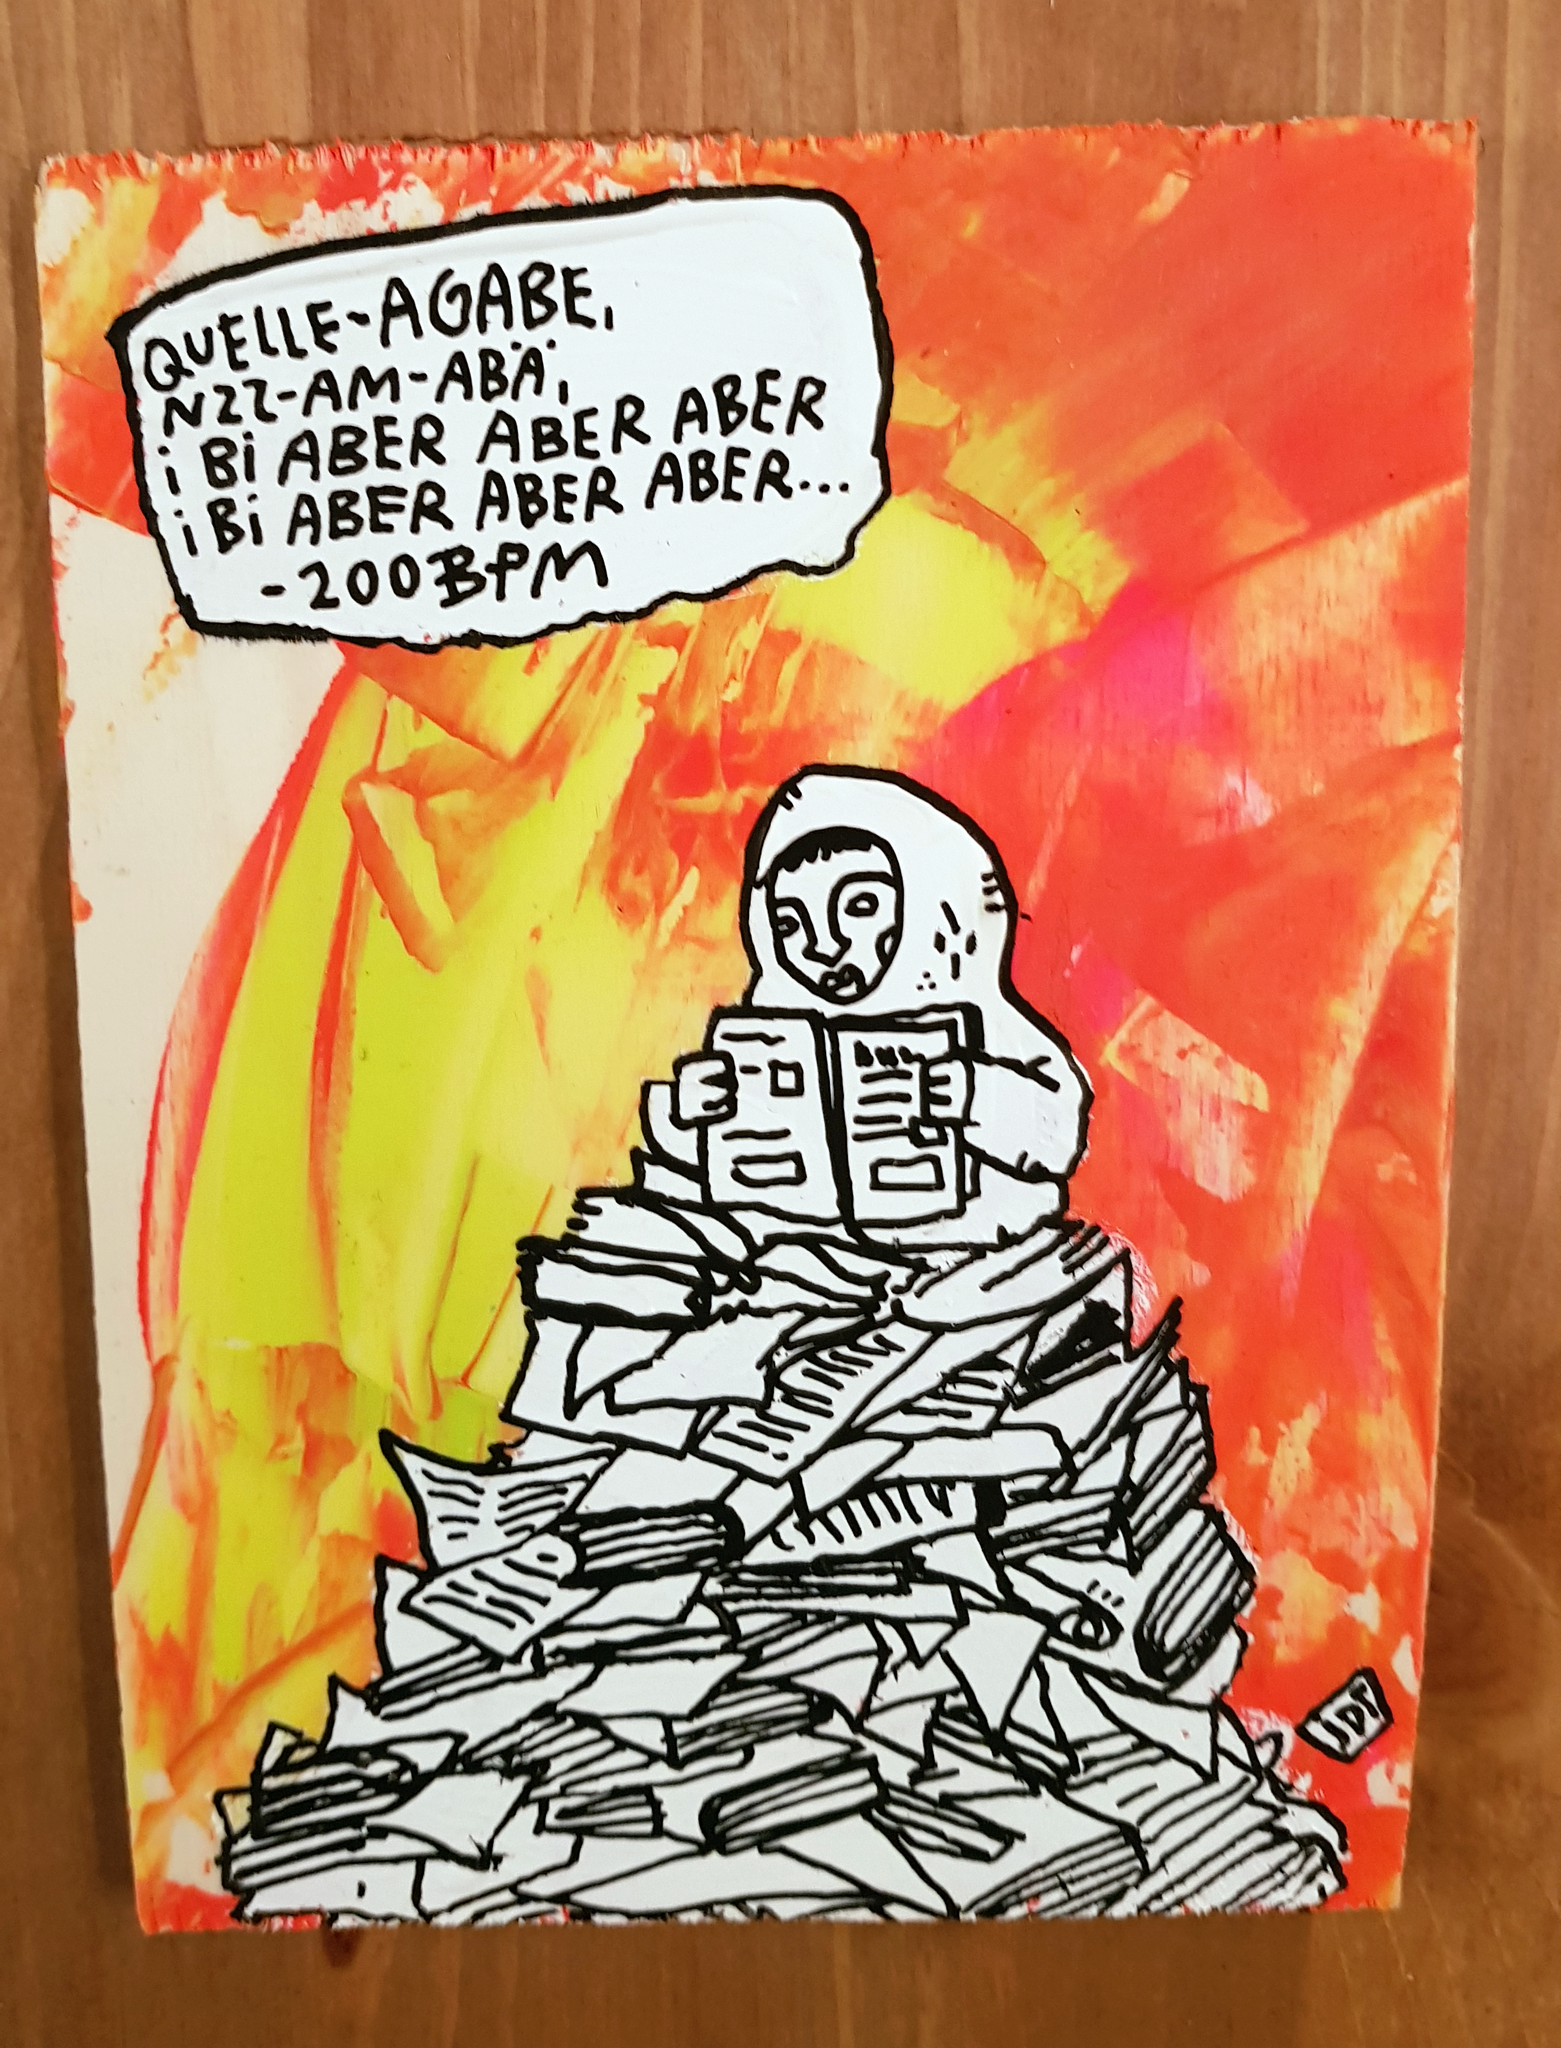 QUELLE-AGABE,
NZZ-AM-ABÄ,
i Bi ABER ABER ABER
i Bi ABER ABER ABER...
-200BPM